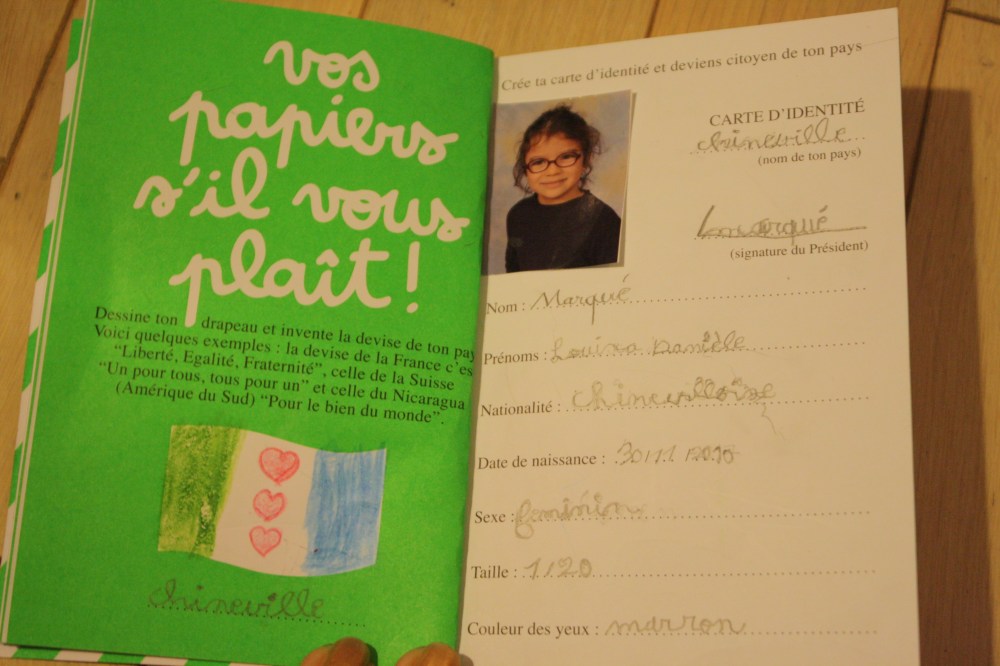 vos
papiers
s'il vous
plaît !
Dessine ton drapeau et invente la devise de ton pay
Voici quelques exemples : la devise de la France c'es
"Liberté, Egalité, Fraternité", celle de la Suisse
"Un pour tous, tous pour un" et celle du Nicaragua
(Amérique du Sud) "Pour le bien du monde".
chineville
Crée ta carte d'identité et deviens citoyen de ton pays
CARTE D'IDENTITÉ
chineville
(nom de ton pays)
Lmarqué
(signature du Président)
Nom : Marqué
Prénoms : Danièle
Nationalité : chinevilloise
Date de naissance : 30/11
Sexe : féminin
Taille : 1/20
Couleur des yeux : marron